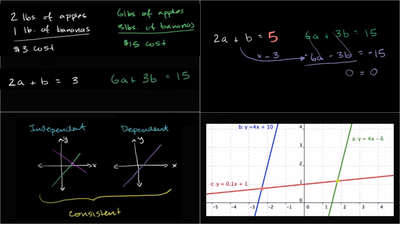 2 lbs of apples
1 lb. of bananas
$3 cost
6 lbs of apples
3 lbs of bananas
$15 cost
2a + b = 3
6a + 3b = 15
2a + b = 5
x - 3
6a + 3b = 15
-6a - 3b = -15
0 = 0
Independent
Dependent
y
x
y
x
Consistent
b: y =4x + 10
a: y = 4x − 6
c: y = 0.1x + 1
4
3
2
1
0
-5 -4 -3 -2 -1 0 1 2 3 4